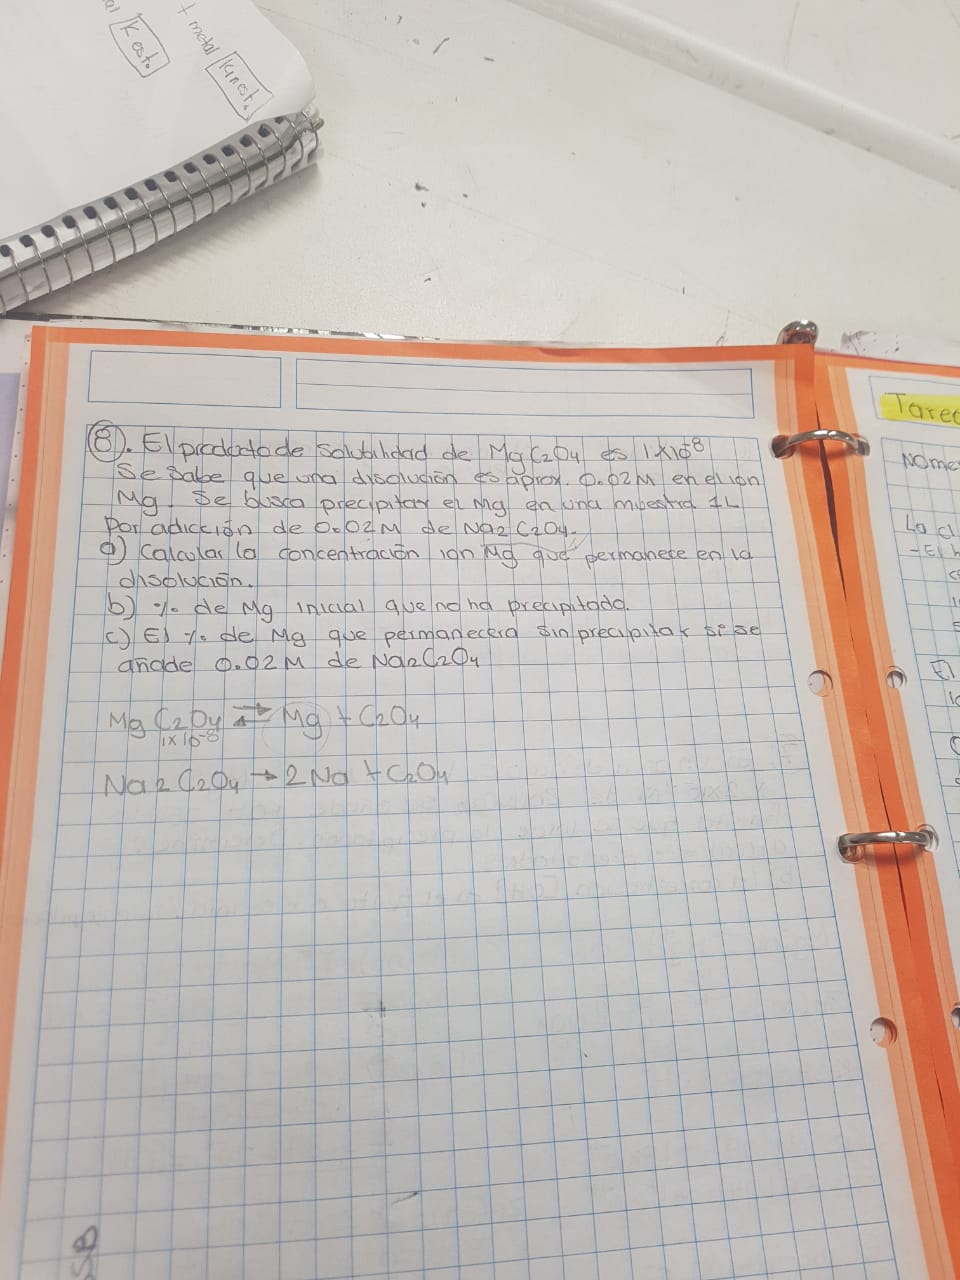 + metal
Kest.
Kinest.
Tarea
8). El producto de solubilidad de MgC2O4 es 1x10-8
Se sabe que una disolución es aprox. 0.02M en el ion
Mg. Se busca precipitar el Mg en una muestra 1L
por adicción de 0.02M de Na2C2O4.
a) Calcular la concentración ion Mg que permanece en la
disolución.
b) % de Mg inicial que no ha precipitado.
c) El % de Mg que permanecerá sin precipitar si se
añade 0.02M de Na2C2O4
MgC2O4 ⇌ Mg + C2O4
1x10-8
Na2C2O4 → 2Na + C2O4
SB